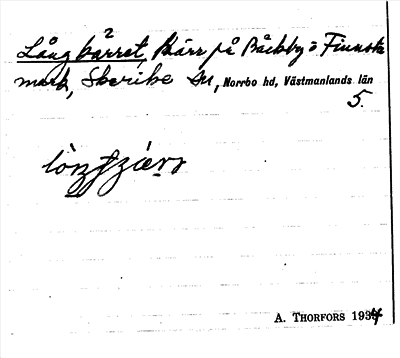 Långkärret, Kärr på Bäckby o Finnsta
mark, Skerike sn, Norrbo hd, Västmanlands län
5.
A. THORFORS 1934